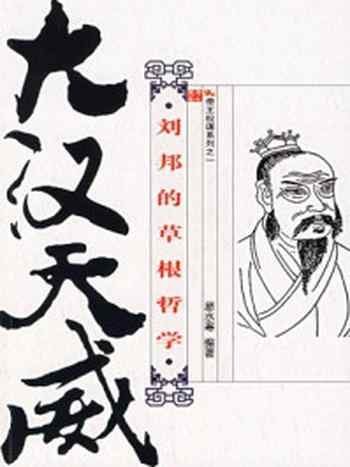 大汉天威
·刘邦的草根哲学·
帝王权谋系列之一
编著